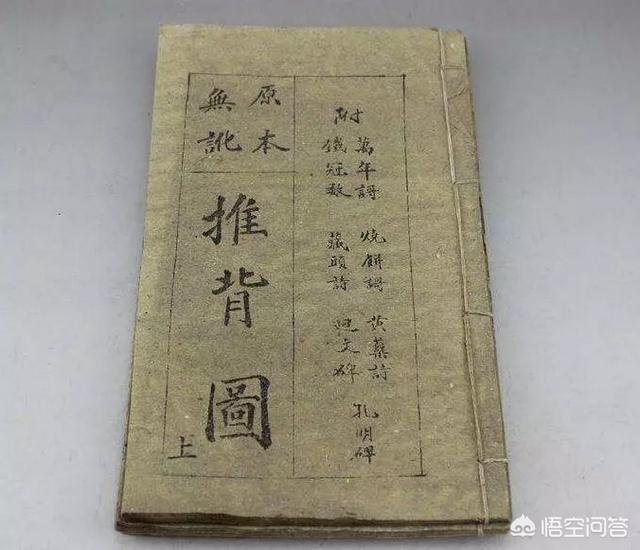 附
萬年謌 燒餅謌 黃蘗詩 孔明碑
鐵冠數 藏頭詩 文碑
原本
無訛
推背圖
上
悟空问答